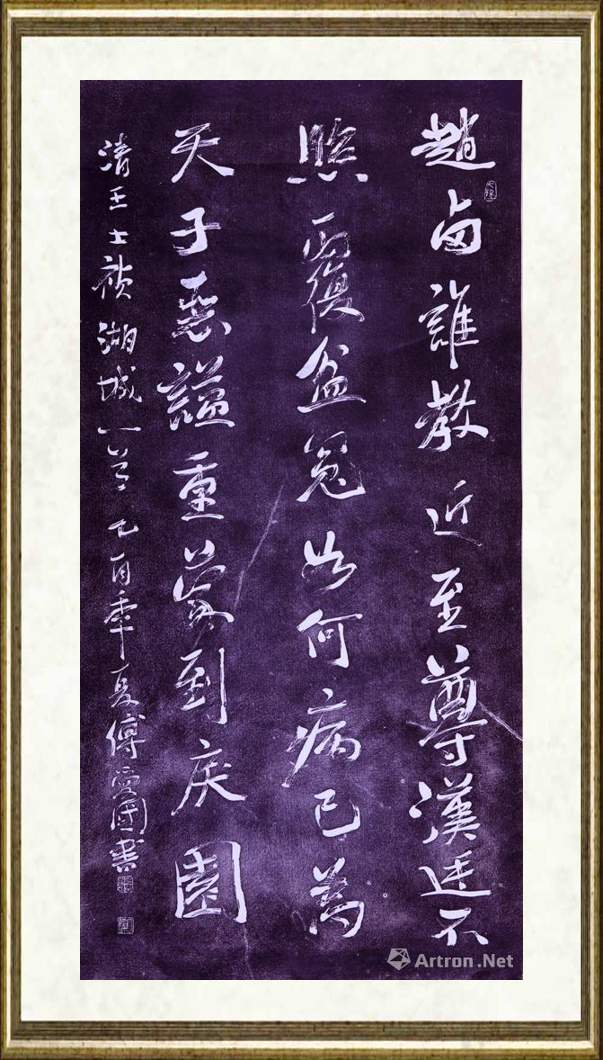 趙卤誰教近至尊漢廷不
照覆盆冤如何病已為
天子惡謚重蒙到戾園
清王士祯湖城一首乙酉年夏傅愛國書
Artron.Net